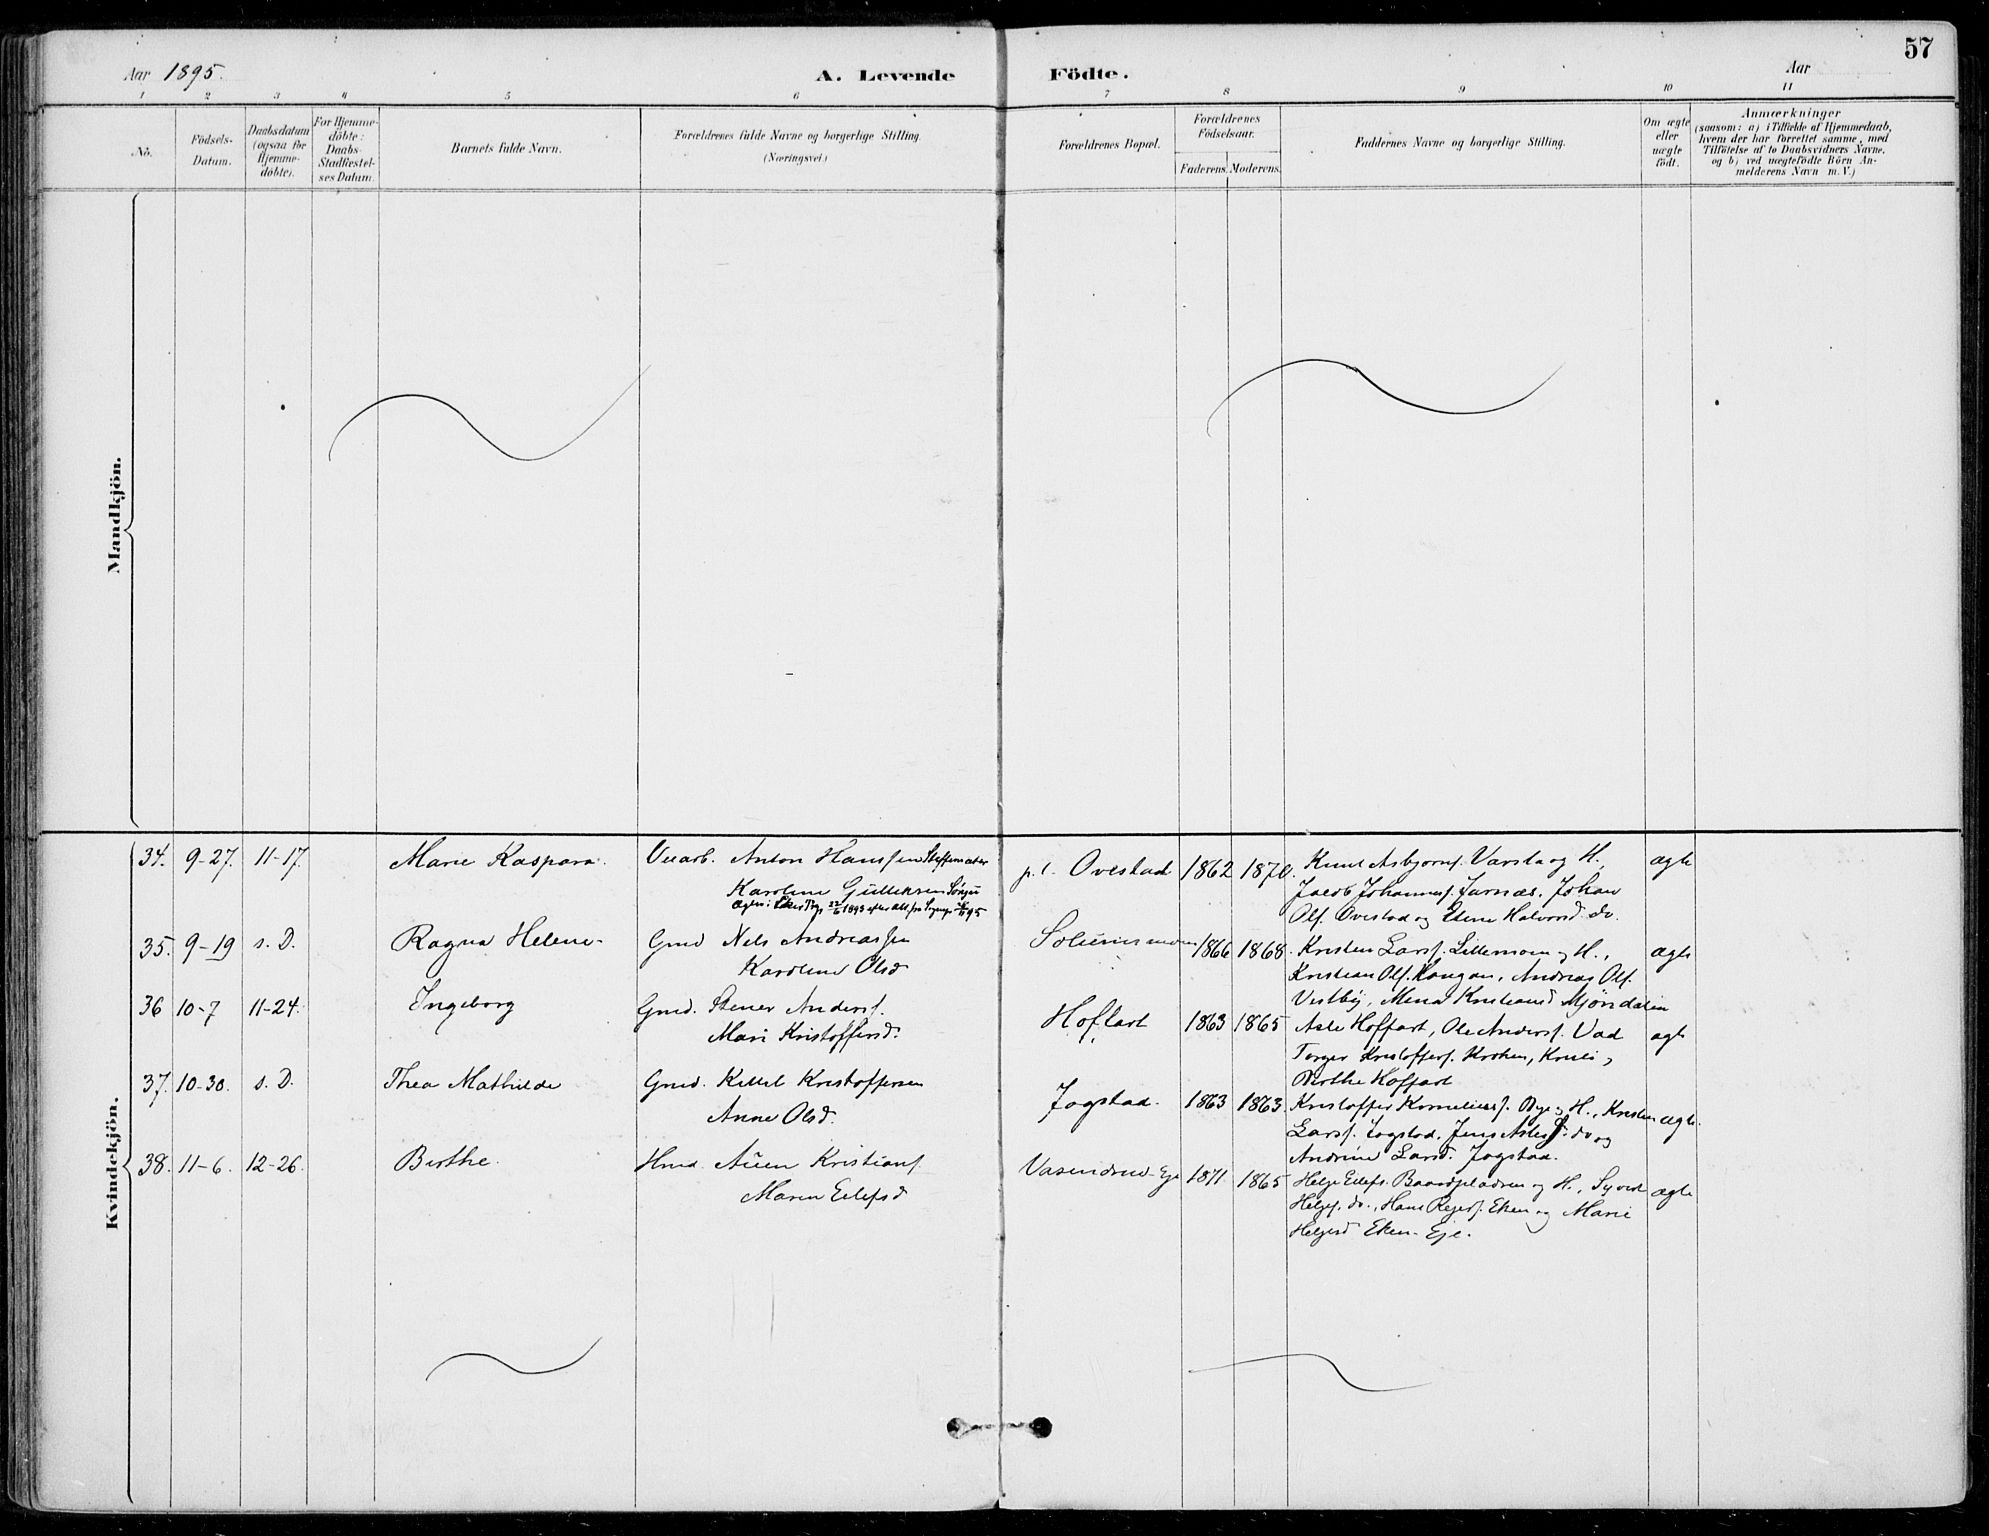 57
Aar 1895.
A. Levende Födte.
Aar
1 2 3 4 5 6 7 8 9 10 11
No.
Födsels-
Datum.
Daabsdatum
(ogsaa for
Hjemme-
döbte).
For Hjemme-
döbte:
Daabs-
Stadfæstel-
ses Datum.
Barnets fulde Navn.
Forældrenes fulde Navne og borgerlige Stilling.
(Næringsvei.)
Forældrenes Bopæl.
Forældrenes
Födselsaar.
Faderens. Moderens.
Faddernes Navne og borgerlige Stilling.
Om ægte
eller
uægte
födt.
Anmærkninger
(saasom: a) i Tilfælde af Hjemmedaab,
hvem der har forrettet samme, med
Tilföielse af to Daabsvidners Navne,
og b) ved uægtefödte Börn An-
melderens Navn m. V.)
Mandkjön.
Kvindekjön.
34. 9-27. 11-17. Marie Kaspara. Anton Hanssen
Karoline Gulleksen
p. t. Ovestad 1862 1870. Knud Asbjørns. Varsla og H.,
Jacob Johanness. Jarnæs, Johan
Ols. Ovestad og Halvorsd. do.
ægte
35. 9-19 s. D. Ragna Helene Gmd Nels Andreassen
Karoline Olsd
1866 1868. Kristen Larss. Lillemoen og H.,
Kristian Ols. Haugan, Andreas Ols.
Vestby, Mina Kristiansd Mjöndalen
ægte
36 10-7 11-24. Ingeborg Gmd. Stener Anderss.
Mari Kristoffersd.
Hoffart 1863 1865 Asle Hoffart, Ole Anderss. Vad
Torger Kristoffers. Kroken,
Berthe Hoffart
ægte
37. 10-30. s. D. Thea Mathilde Gmd. Kittil Kristoffersen
Anne Olsd.
Jogstad. 1863 1863. Kristoffer Korneliuss. Bye og H., Kristen
Larss. Jogstad, Jens Asles. do og
Andrine Larsd. Jogstad.
ægte.
38. 11-6. 12-26. Berthe. Hmd. Kristians
Maren Eilefsd
Vasendrud-Eje 1871 1865 Helge Eilefs. og H., Syver
Helges. do., Hans Eken og Marie
Helgesd Eken-Eje.
ægte